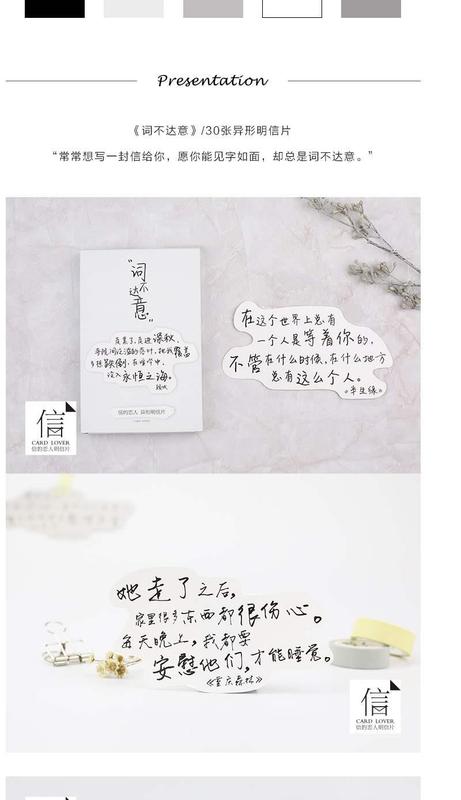 Presentation
《词不达意》/30张异形明信片
“常常想写一封信给你，愿你能见字如面，却总是词不达意。”
“词不达意”
没入永恒之海。
信的恋人 异形明信片
信
CARD LOVER
信的恋人明信片
在这个世界上总有
一个人是等着你的，
不管在什么时候，在什么地方
总有这么个人。
《半生缘》
她走了之后，
家里很多东西都很伤心。
每天晚上，我都要
安慰他们，才能睡觉。
《重庆森林》
信
CARD LOVER
信的恋人明信片